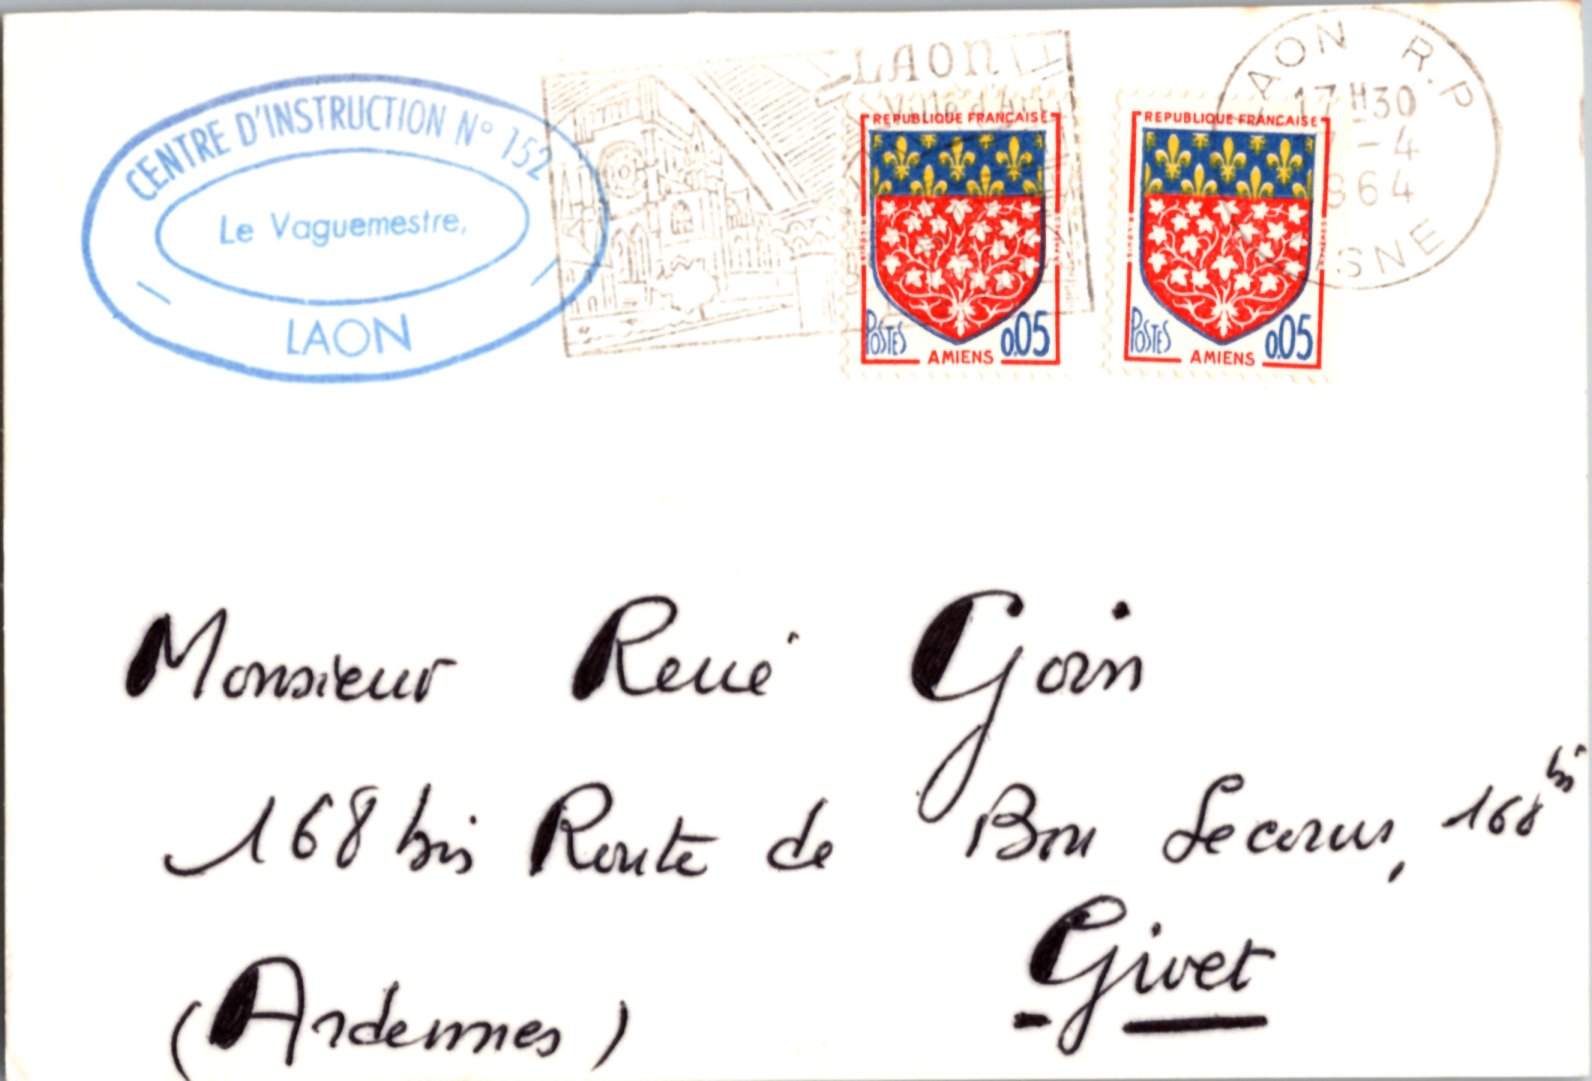 CENTRE D'INSTRUCTION N° 152
Le Vaguemestre,
LAON
LAON
Ville d'Art
REPUBLIQUE FRANÇAISE
POSTES
AMIENS
0,05
REPUBLIQUE FRANÇAISE
POSTES
AMIENS
0,05
LAON R.P
17H30
-4
1964
AISNE
Monsieur René Goin
168 bis Route de Bon Secours, 168 bis
Givet
(Ardennes)